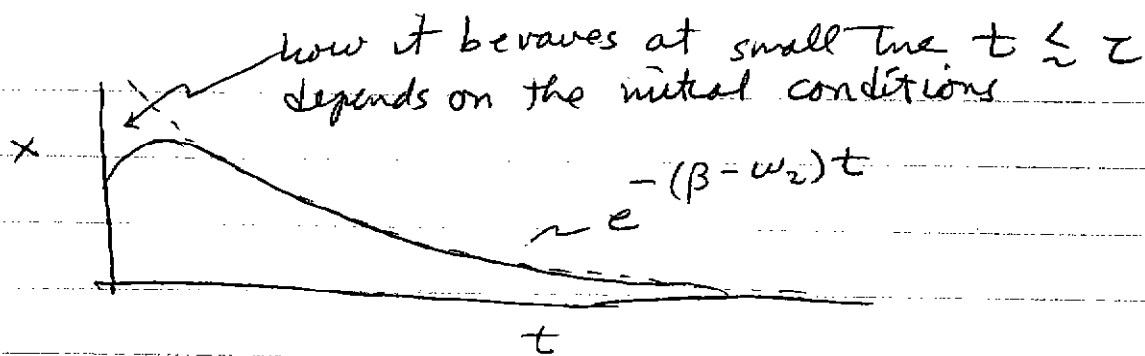 how it behaves at small time t ≲ τ
depends on the initial conditions
x
~ e^{-(β-ω₂)t}
t